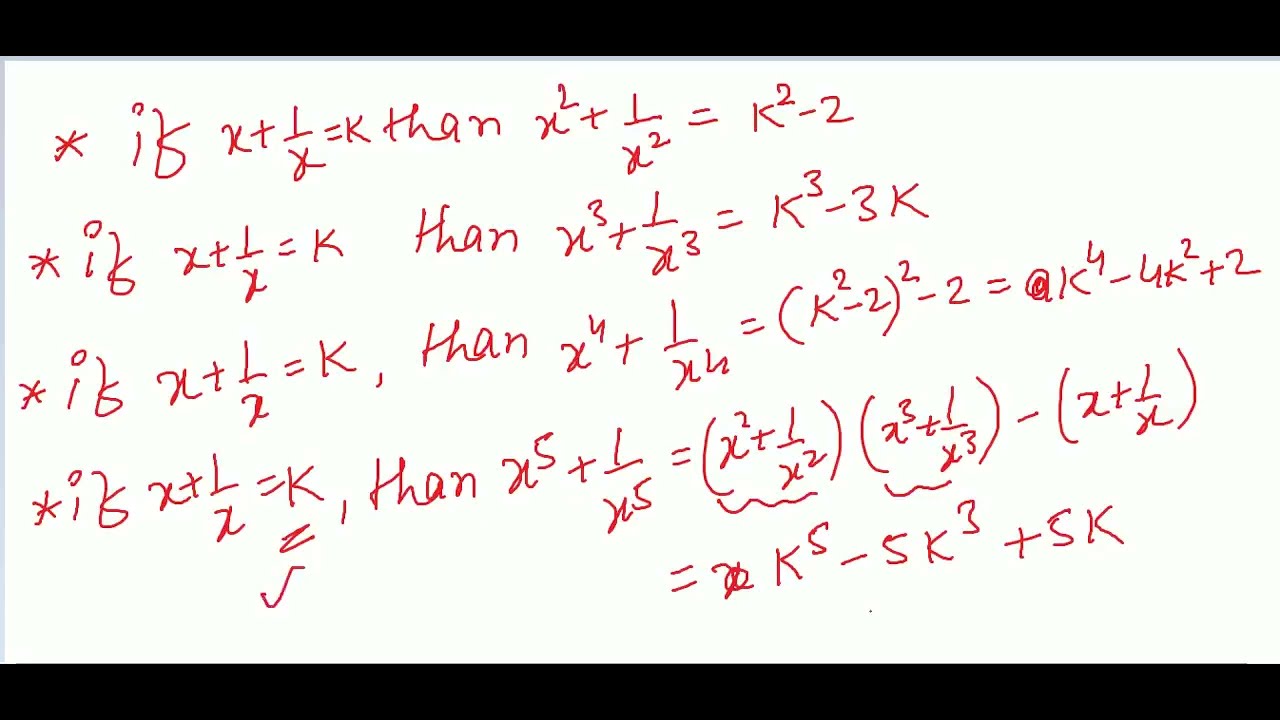 * if x + 1/x = K than x² + 1/x² = K² - 2
* if x + 1/x = K than x³ + 1/x³ = K³ - 3K
* if x + 1/x = K, than x⁴ + 1/x⁴ = (K² - 2)² - 2 = K⁴ - 4K² + 2
* if x + 1/x = K, than x⁵ + 1/x⁵ = (x² + 1/x²)(x³ + 1/x³) - (x + 1/x)
= K⁵ - 5K³ + 5K